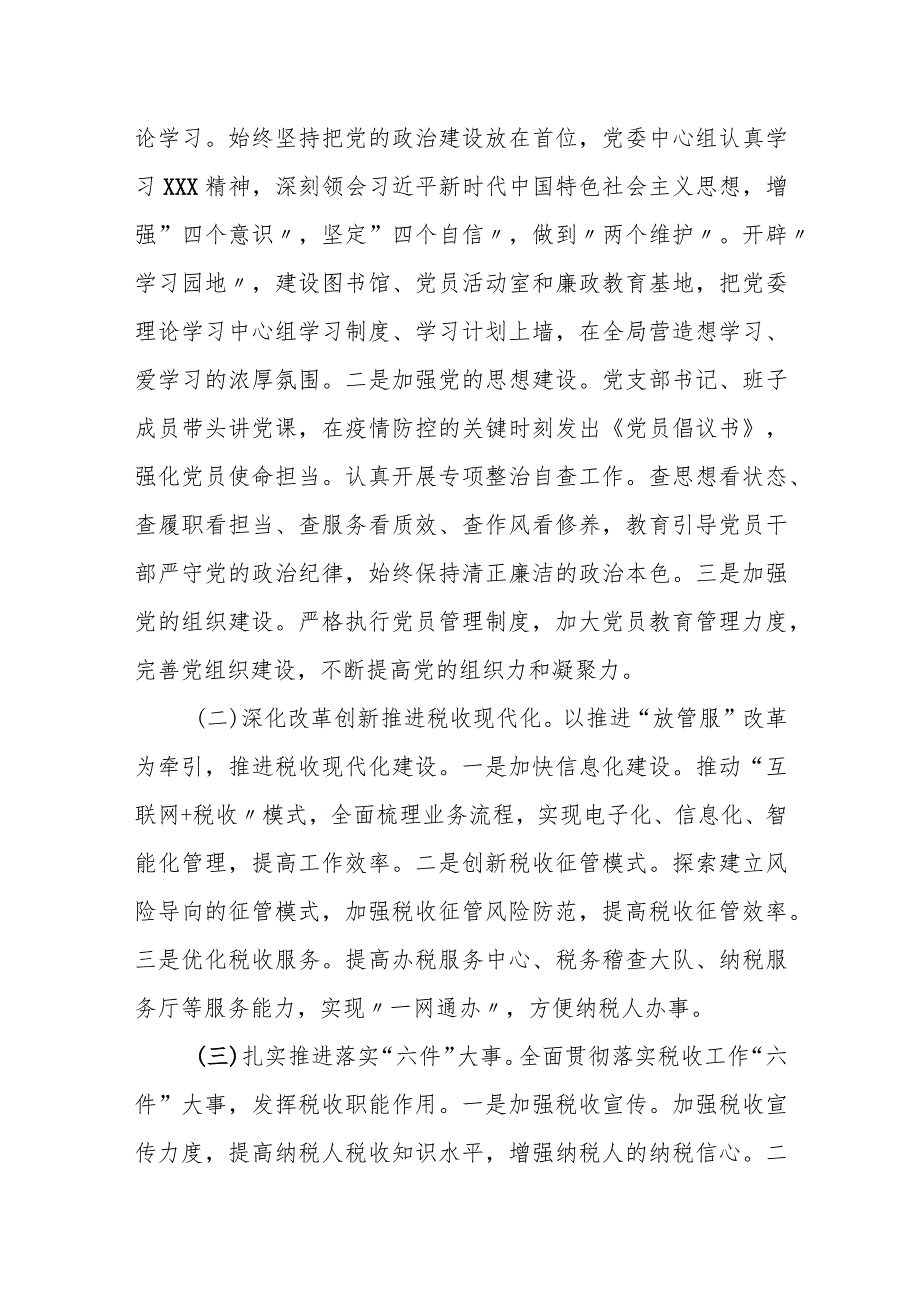 论学习。始终坚持把党的政治建设放在首位，党委中心组认真学
习 XXX 精神，深刻领会习近平新时代中国特色社会主义思想，增
强”四个意识〃，坚定”四个自信〃，做到〃两个维护〃。开辟〃
学习园地〃，建设图书馆、党员活动室和廉政教育基地，把党委
理论学习中心组学习制度、学习计划上墙，在全局营造想学习、
爱学习的浓厚氛围。二是加强党的思想建设。党支部书记、班子
成员带头讲党课，在疫情防控的关键时刻发出《党员倡议书》，
强化党员使命担当。认真开展专项整治自查工作。查思想看状态、
查履职看担当、查服务看质效、查作风看修养，教育引导党员干
部严守党的政治纪律，始终保持清正廉洁的政治本色。三是加强
党的组织建设。严格执行党员管理制度，加大党员教育管理力度，
完善党组织建设，不断提高党的组织力和凝聚力。
(二)深化改革创新推进税收现代化。以推进“放管服”改革
为牵引，推进税收现代化建设。一是加快信息化建设。推动“互
联网+税收〃模式，全面梳理业务流程，实现电子化、信息化、智
能化管理，提高工作效率。二是创新税收征管模式。探索建立风
险导向的征管模式，加强税收征管风险防范，提高税收征管效率。
三是优化税收服务。提高办税服务中心、税务稽查大队、纳税服
务厅等服务能力，实现〃一网通办〃，方便纳税人办事。
(三)扎实推进落实“六件”大事。全面贯彻落实税收工作“六
件”大事，发挥税收职能作用。一是加强税收宣传。加强税收宣
传力度，提高纳税人税收知识水平，增强纳税人的纳税信心。二